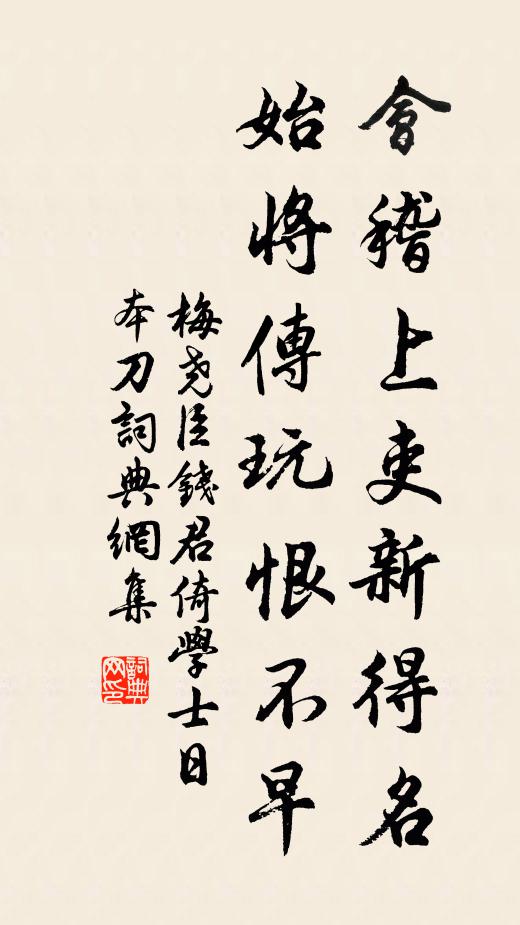 會稽上吏新得名
始將傳玩恨不早
梅堯臣錢君倚學士日
本刀詞典網集
詞典
网印